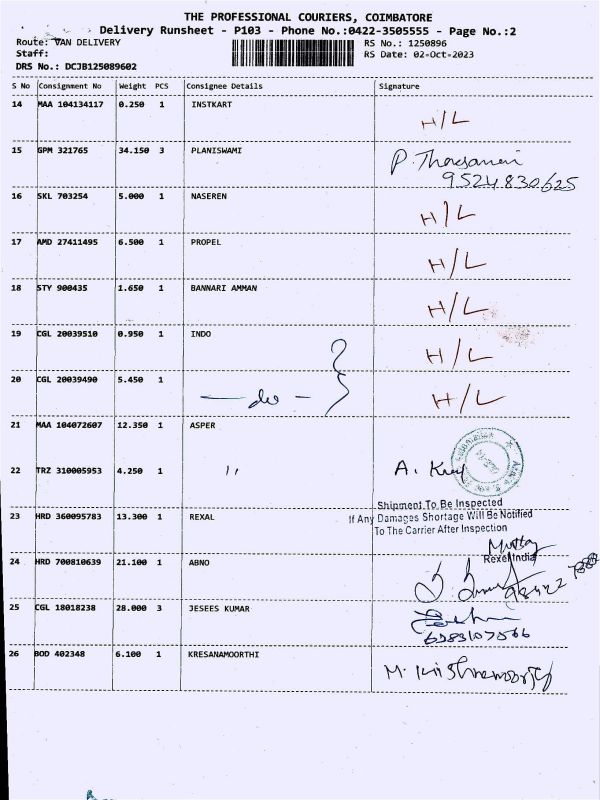 THE PROFESSIONAL COURIERS, COIMBATORE
Delivery Runsheet - P103 - Phone No.:0422-3505555 - Page No.:2
Route: VAN DELIVERY RS No.: 1250896
Staff: RS Date: 02-Oct-2023
DRS No.: DCJB125089602
S No Consignment No Weight PCS Consignee Details Signature
14 MAA 104134117 0.250 1 INSTKART H/L
15 GPM 321765 34.150 3 PLANISWAMI P.
9524830625
16 SKL 703254 5.000 1 NASEREN H/L
17 AMD 27411495 6.500 1 PROPEL H/L
18 STY 900435 1.650 1 BANNARI AMMAN H/L
19 CGL 20039510 0.950 1 INDO H/L
20 CGL 20039490 5.450 1 — do — H/L
21 MAA 104072607 12.350 1 ASPER
22 TRZ 310005953 4.250 1 " A.
Shipment To Be Inspected
23 HRD 360095783 13.300 1 REXAL If Any Damages Shortage Will Be Notified
To The Carrier After Inspection
Rexel India
24 HRD 700810639 21.100 1 ABNO
25 CGL 18018238 28.000 3 JESEES KUMAR
6383107566
26 BOD 402348 6.100 1 KRESANAMOORTHI M. Krishnamoorthy